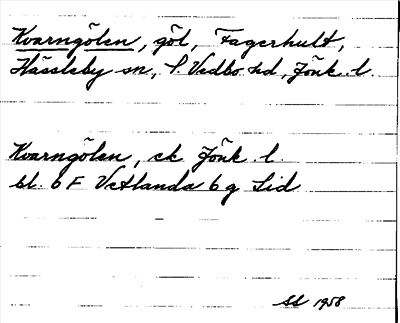 Kvarngölen, göl, Fagerhult,
Hässleby sn, S. Vedbo hd, Jönk. l.
Kvarngölen, ek Jönk. l.
bl. 6 F Vetlanda 6 g Lid
SS 1958